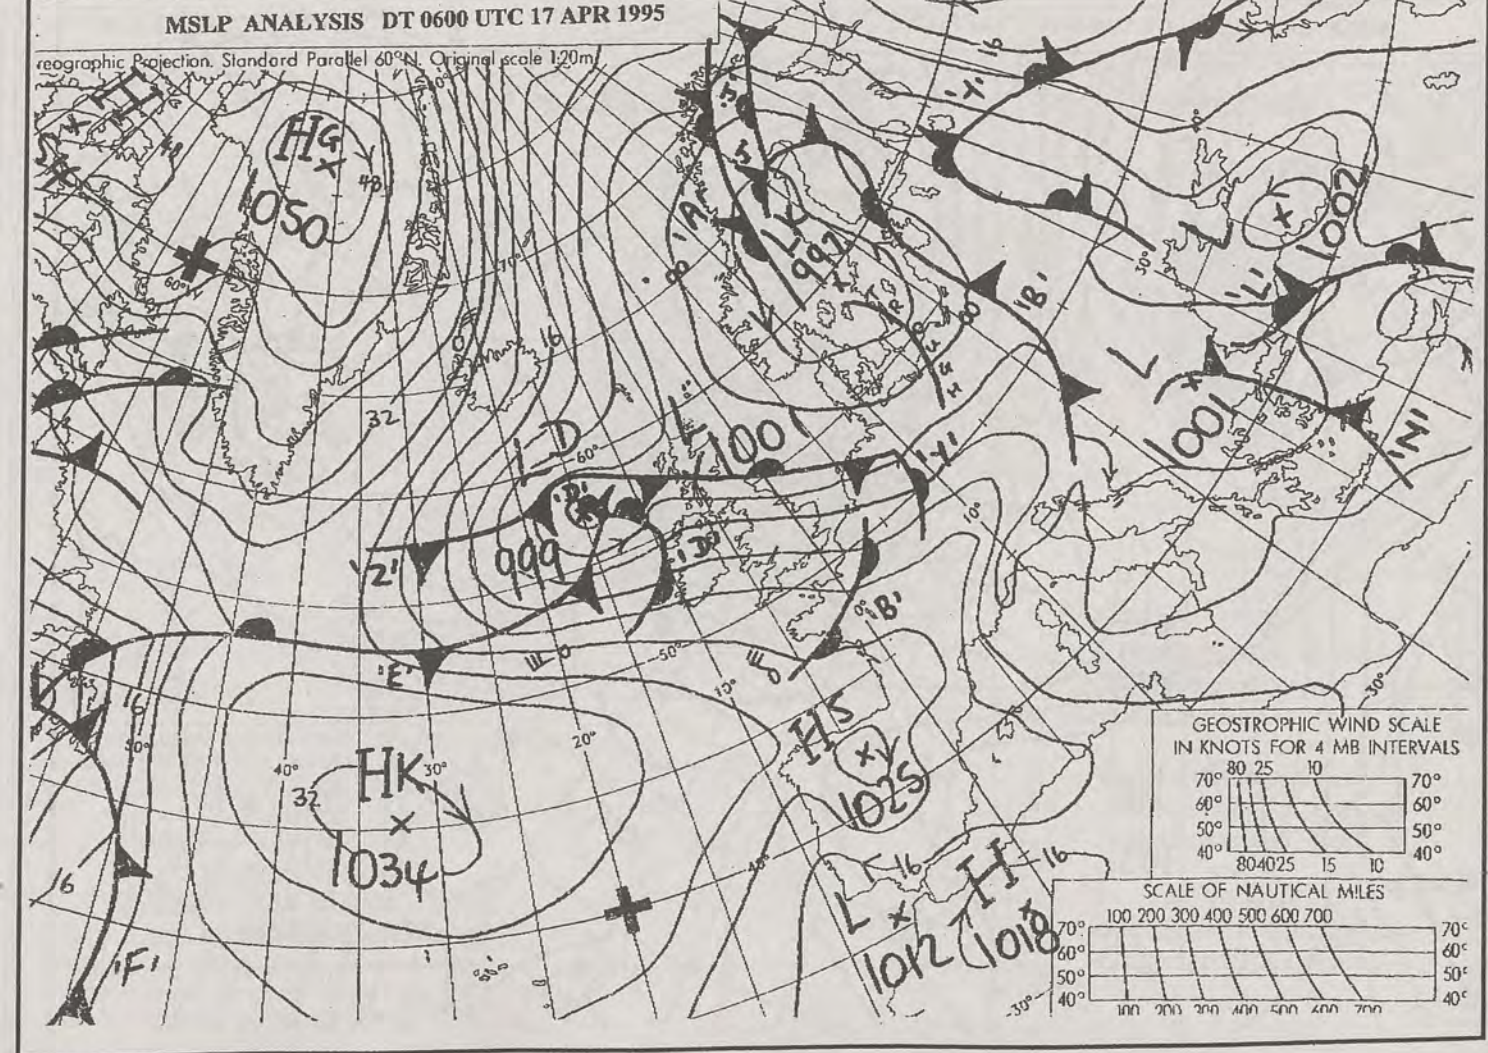 MSLP ANALYSIS DT 0600 UTC 17 APR 1995
reographic Projection. Standard Parallel 60°N. Original scale 1:20m
H
HG
1050
48
48
60°N
70°
16
16
32
'A'
LK
992
00
00
TROUGH
'B'
'Y'
L
1002
'L'
L
1001
'N'
30°
L
1001
LD
'D'
999
'D'
'Z'
'Y'
'B'
60°
10°
0°
50°
10°
20°
30°
40°
50°
'E'
HK
1034
32
16
16
'F'
HS
1025
40°
L
1012
H
1018
16
16
30°
30°
GEOSTROPHIC WIND SCALE
IN KNOTS FOR 4 MB INTERVALS
80 25 10
70° 70°
60° 60°
50° 50°
40° 40°
80 40 25 15 10
SCALE OF NAUTICAL MILES
100 200 300 400 500 600 700
70° 70°
60° 60°
50° 50°
40° 40°
100 200 300 400 500 600 700